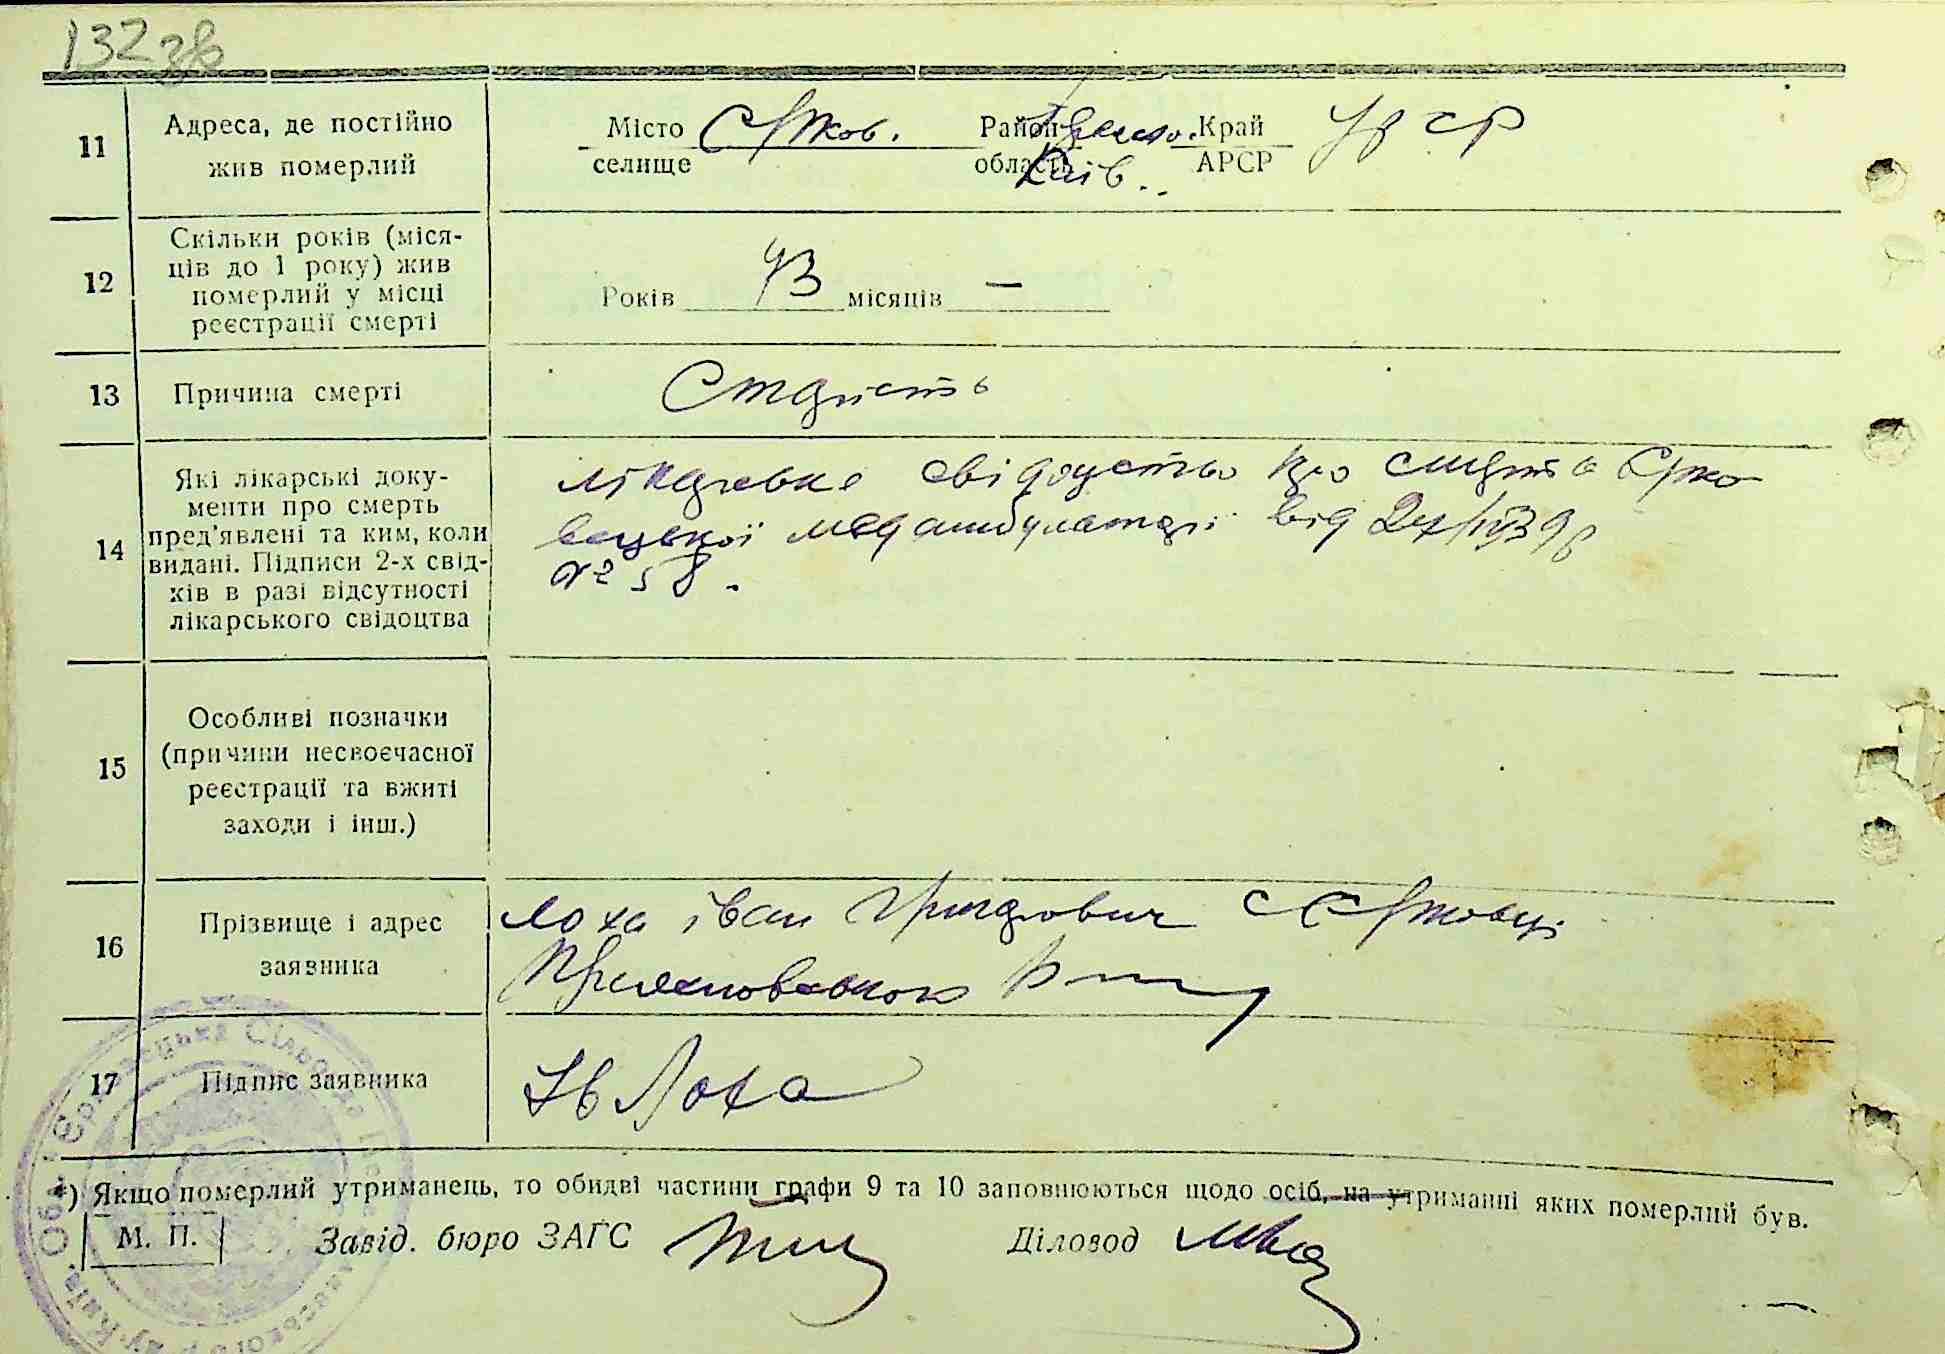 132 зв
11 Адреса, де постійно жив померлий
Місто селище С Єрков. Район область Київ.. Край АРСР УРСР
12 Скільки років (міся-
ців до 1 року) жив
померлий у місці
реєстрації смерті
Років 73 місяців —
13 Причина смерті Старість
14 Які лікарські доку-
менти про смерть
пред'явлені та ким, коли
видані. Підписи 2-х свід-
ків в разі відсутності
лікарського свідоцтва
лікарське свідоцтво про смерть Єрко
вецької медамбулаторії від
№ 58.
15 Особливі позначки
(причини несвоєчасної
реєстрації та вжиті
заходи і інш.)
16 Прізвище і адрес
заявника
Лоха іван Григорович с Єрковці
17 Підпис заявника Ів Лоха
*) Якщо померлий утриманець, то обидві частини графи 9 та 10 заповнюються щодо осіб, на утриманні яких померлий був.
М. П. Завід. бюро ЗАГС Діловод